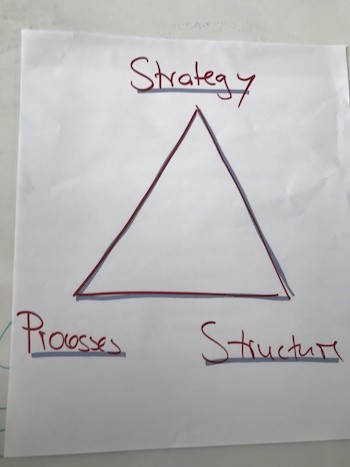 Strategy
Processes
Structure